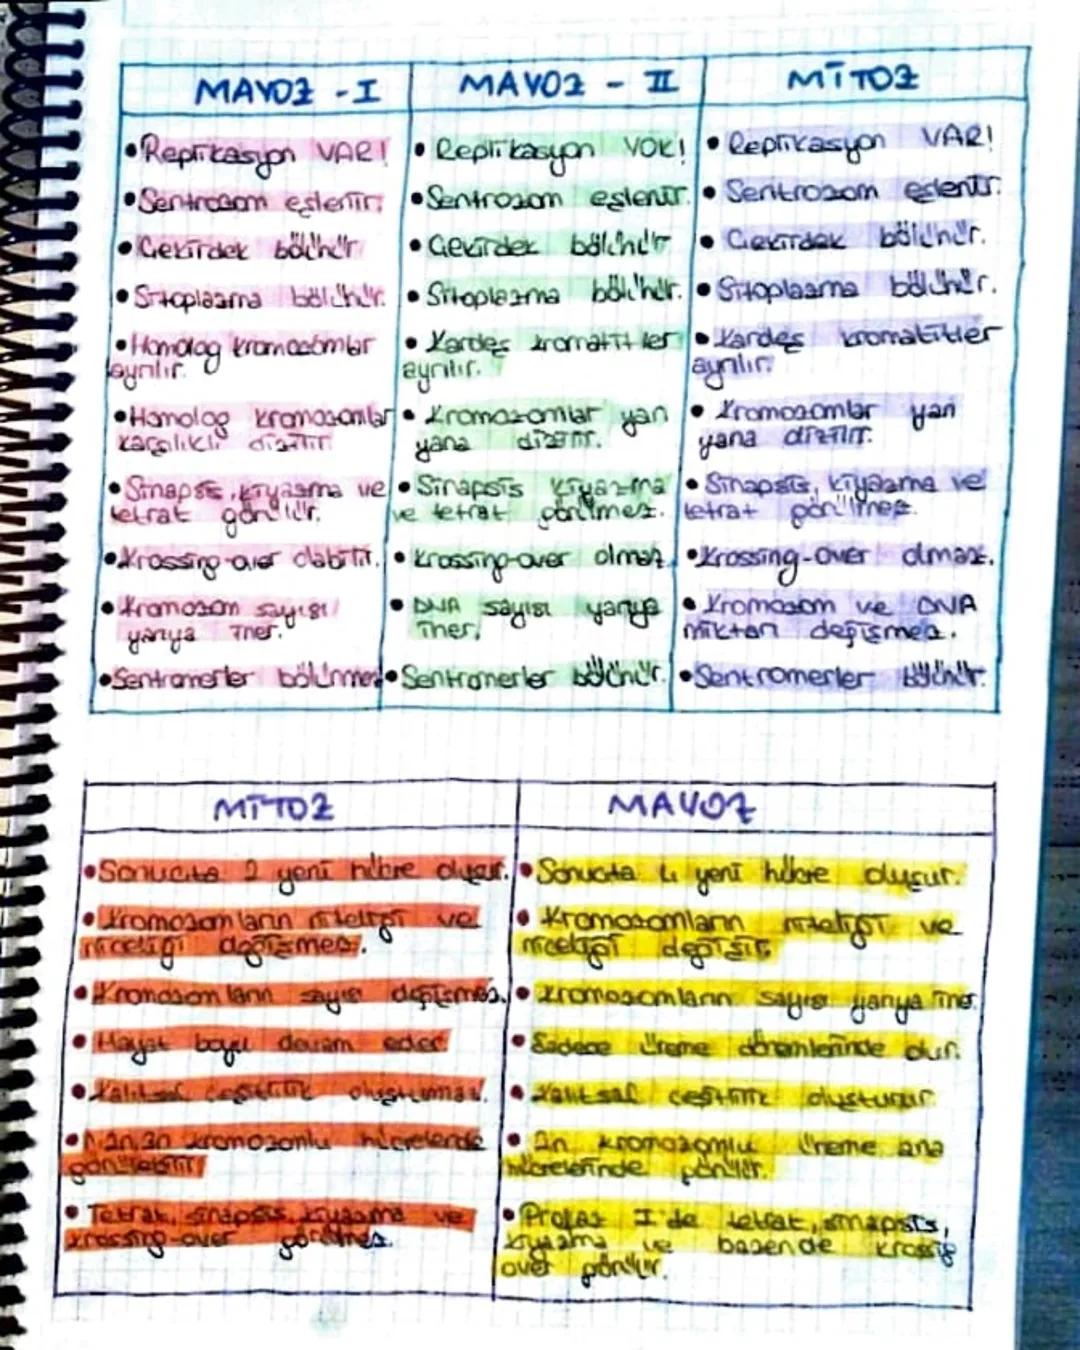 MAYOZ - I
• Replikasyon VAR!
• Sentrozom eşlenir.
• Çekirdek bölünür
• Sitoplazma bölünür.
• Homolog kromozomlar
ayrılır.
• Homolog kromozomlar
karşılıklı dizilir.
• Sinapsis, kiyazma ve
tetrat görülür.
• Krossing-over olabilir.
• Kromozom sayısı
yarıya iner.
• Sentromerler bölünmez
MAYOZ - II
• Replikasyon YOK!
• Sentrozom eşlenir.
• Çekirdek bölünür
• Sitoplazma bölünür.
• Kardeş kromatitler
ayrılır.
• Kromozomlar yan
yana dizilir.
• Sinapsis kiyazma
ve tetrat görülmez.
• Krossing-over olmaz.
• DNA sayısı yarıya
iner.
• Sentromerler bölünür.
MİTOZ
• Replikasyon VAR!
• Sentrozom eşlenir.
• Çekirdek bölünür.
• Sitoplazma bölünür.
• Kardeş kromatitler
ayrılır.
• Kromozomlar yan
yana dizilir.
• Sinapsis, kiyazma ve
tetrat görülmez.
• Krossing-over olmaz.
• Kromozom ve DNA
miktarı değişmez.
• Sentromerler bölünür.
MİTOZ
• Sonuçta 2 yeni hücre oluşur.
• Kromozomların niteliği ve
niceliği değişmez.
• Kromozomların sayısı değişmez.
• Hayat boyu devam eder
• Kalıtsal çeşitlilik oluşturmaz.
• n, 2n, 3n kromozomlu hücrelerde
görülebilir
• Tetrat, sinapsis, kiyazma ve
krossing-over görülmez.
MAYOZ
• Sonuçta 4 yeni hücre oluşur.
• Kromozomların niteliği ve
niceliği değişir.
• Kromozomların sayısı yarıya iner.
• Sadece üreme dönemlerinde olur.
• Kalıtsal çeşitlilik oluşturur
• 2n kromozomlu üreme ana
hücrelerinde görülür.
• Profaz I'de tetrat, sinapsis,
kiyazma ve bazende krossig
over görülür.